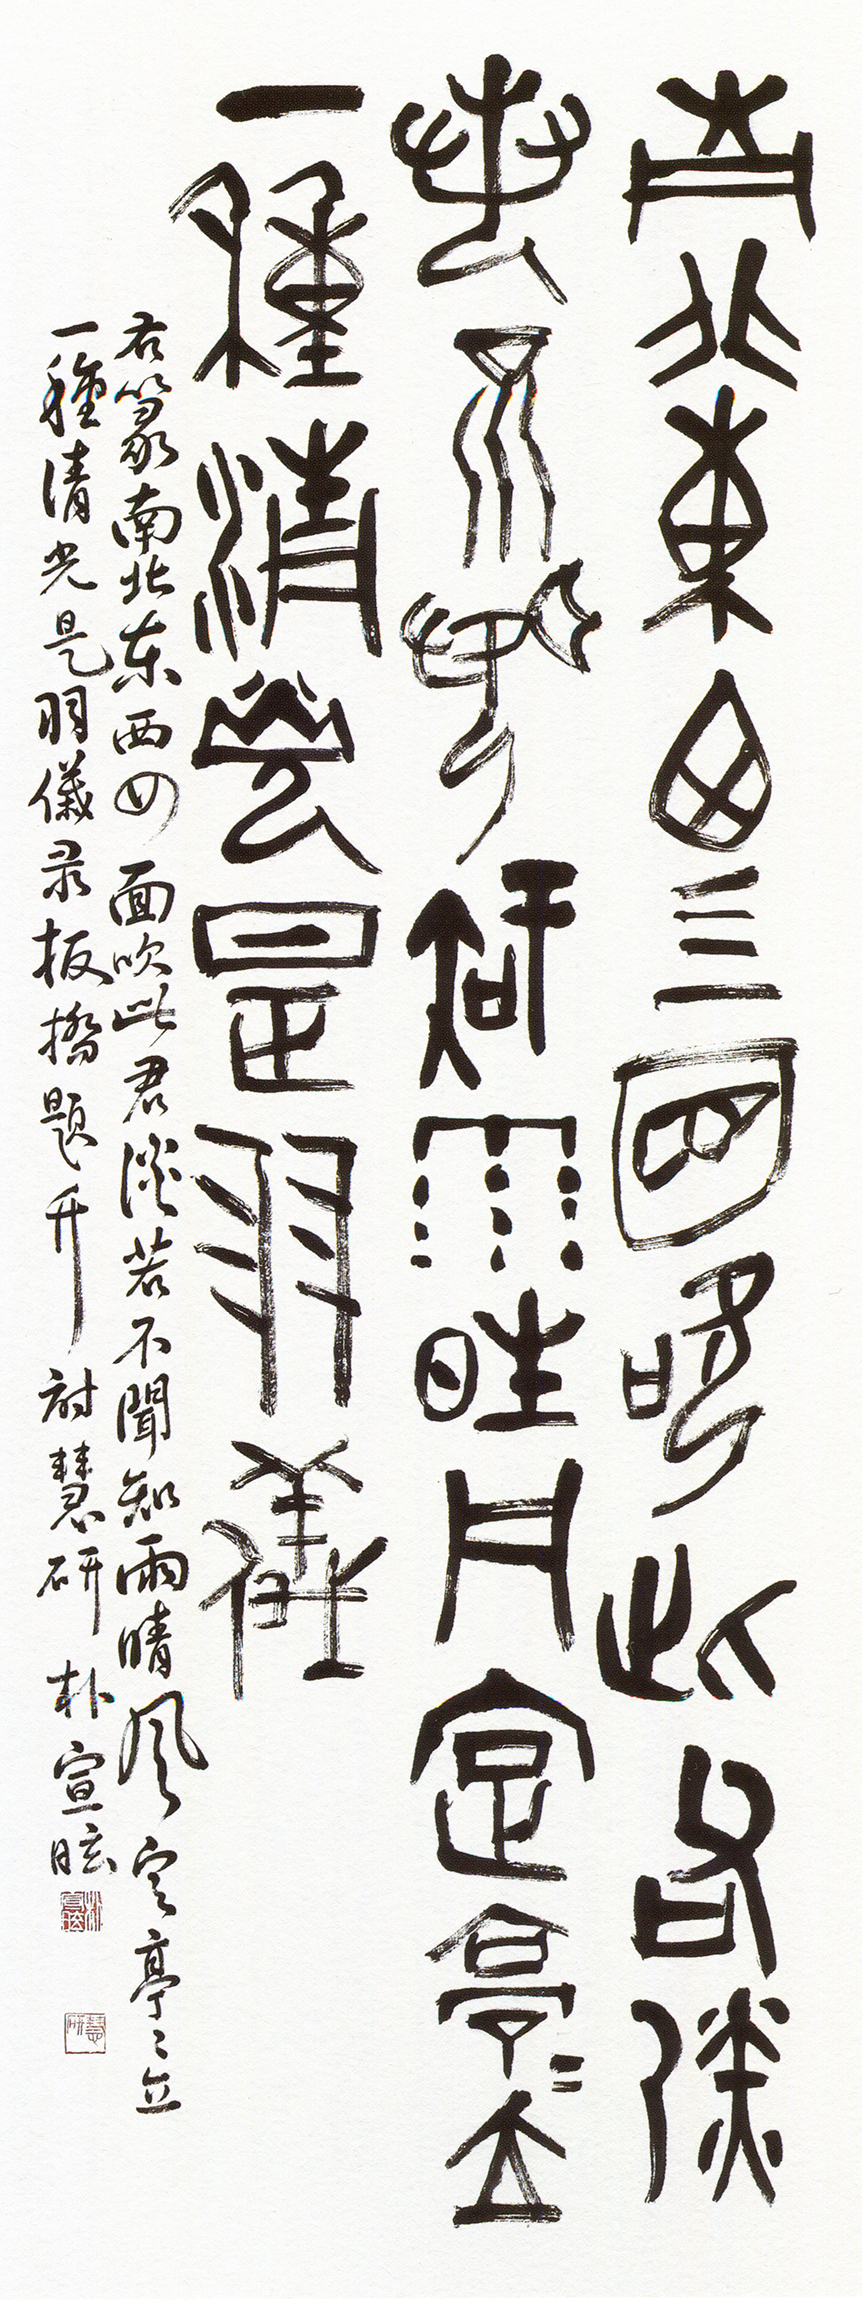 南北東西四面吹此君淡
若不聞知雨晴月定亭=立
一種清光是羽儀
右篆南北东西四面吹此君淡若不聞知雨晴風定亭〻立
一種清光是羽儀录板橋題竹詩慧研朴宣昡